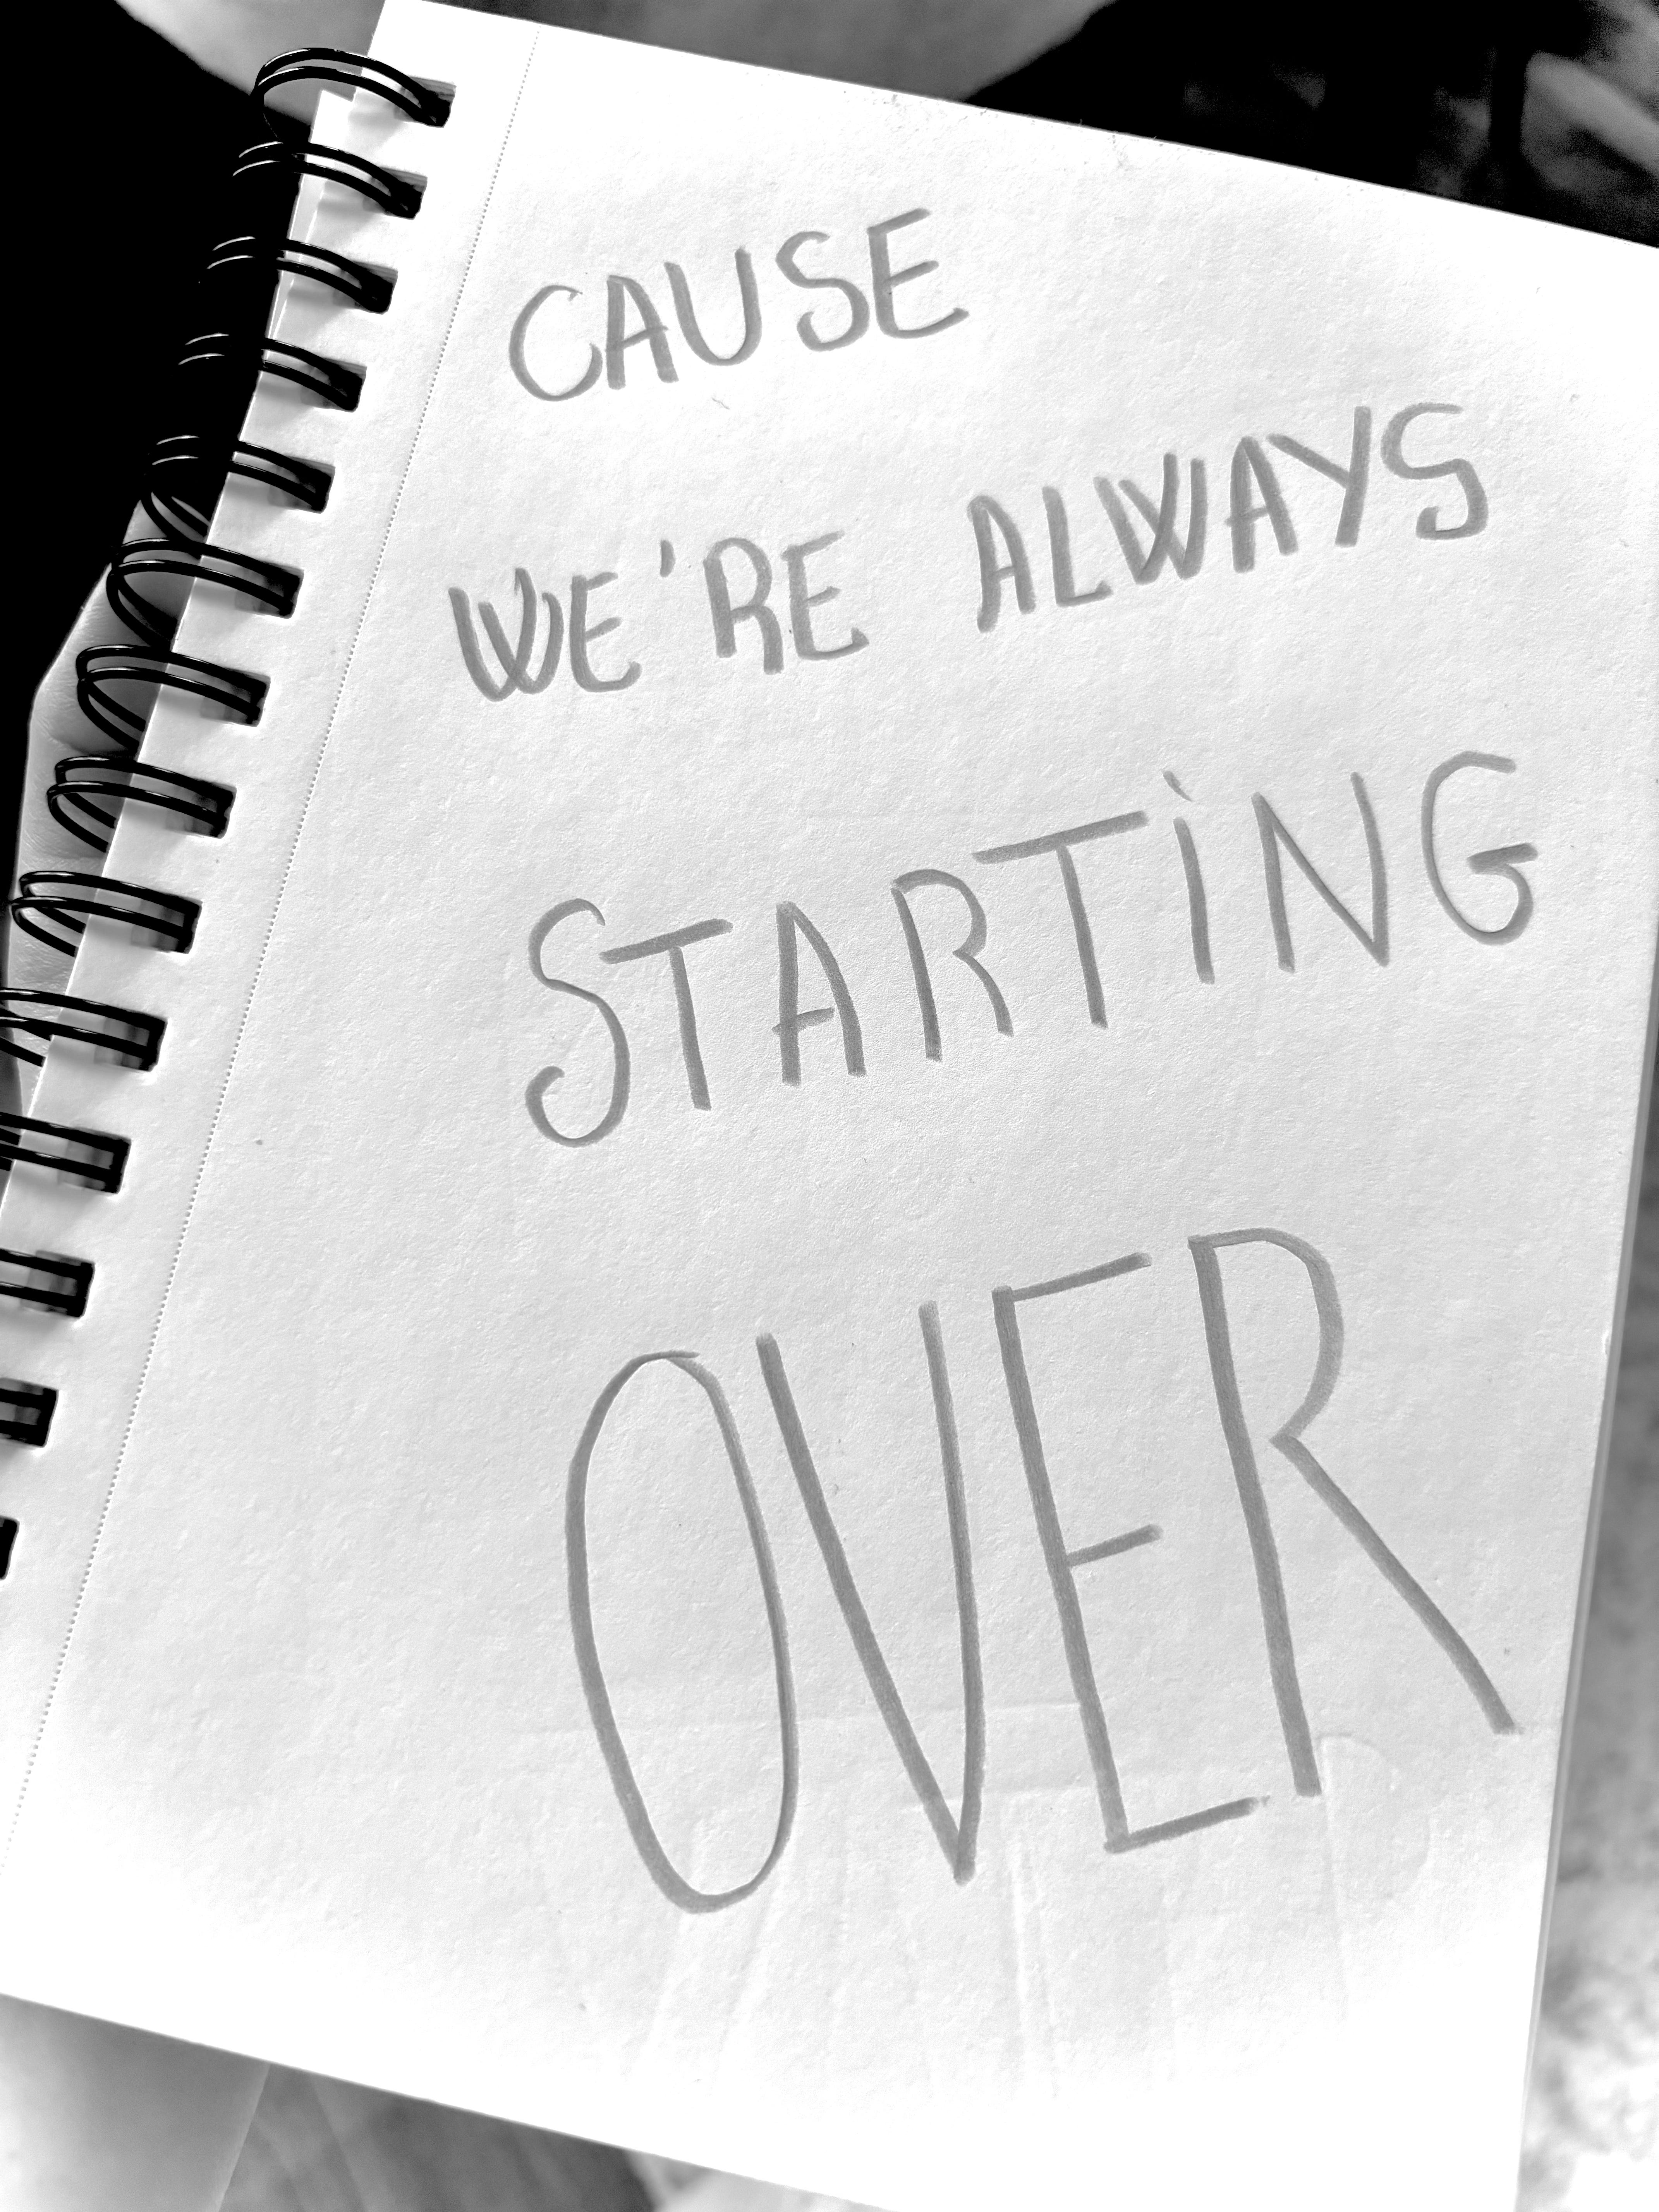 CAUSE
WE'RE ALWAYS
STARTiNG
OVER